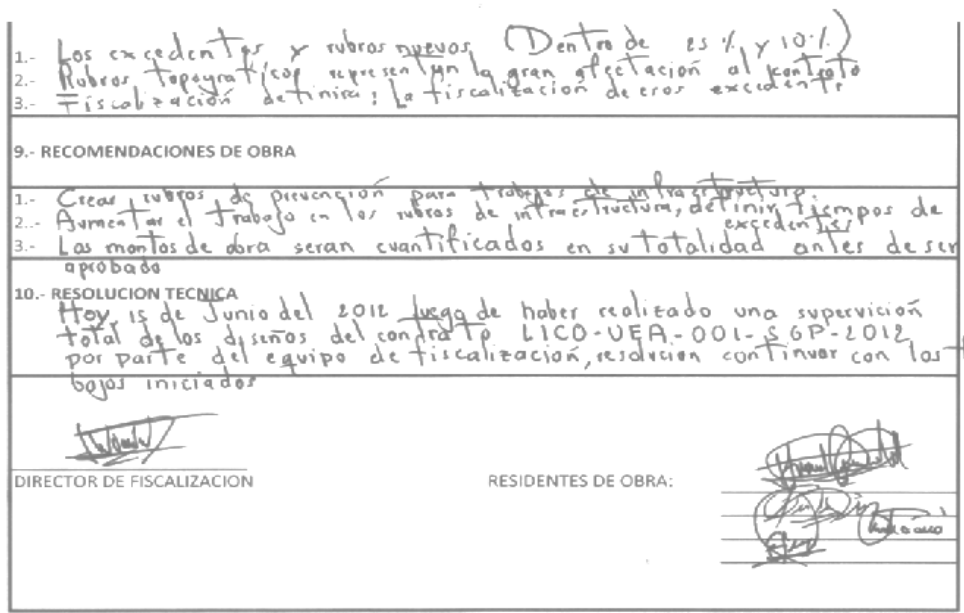 1.- Los excedentes y rubros nuevos (Dentro de 25 % y 10 %)
2.- Rubros topograficos representan la gran afectación al contrato
3.- Fiscalización definira; la fiscalización de esos excedente
9.- RECOMENDACIONES DE OBRA
1.- Crear rubros de prevención para trabajos de infraestructura.
2.- Aumentar el trabajo en los rubros de infraestructura, definir tiempos de
excedentes
3.- Los montos de obra seran cuantificados en su totalidad antes de ser
aprobado
10.- RESOLUCION TECNICA
Hoy, 15 de Junio del 2012 luego de haber realizado una supervición
total de los diseños del contrato LICO-UEA-001-SGP-2012
por parte del equipo de fiscalización, resolucion continuar con los t
bajos iniciados
DIRECTOR DE FISCALIZACION
RESIDENTES DE OBRA: